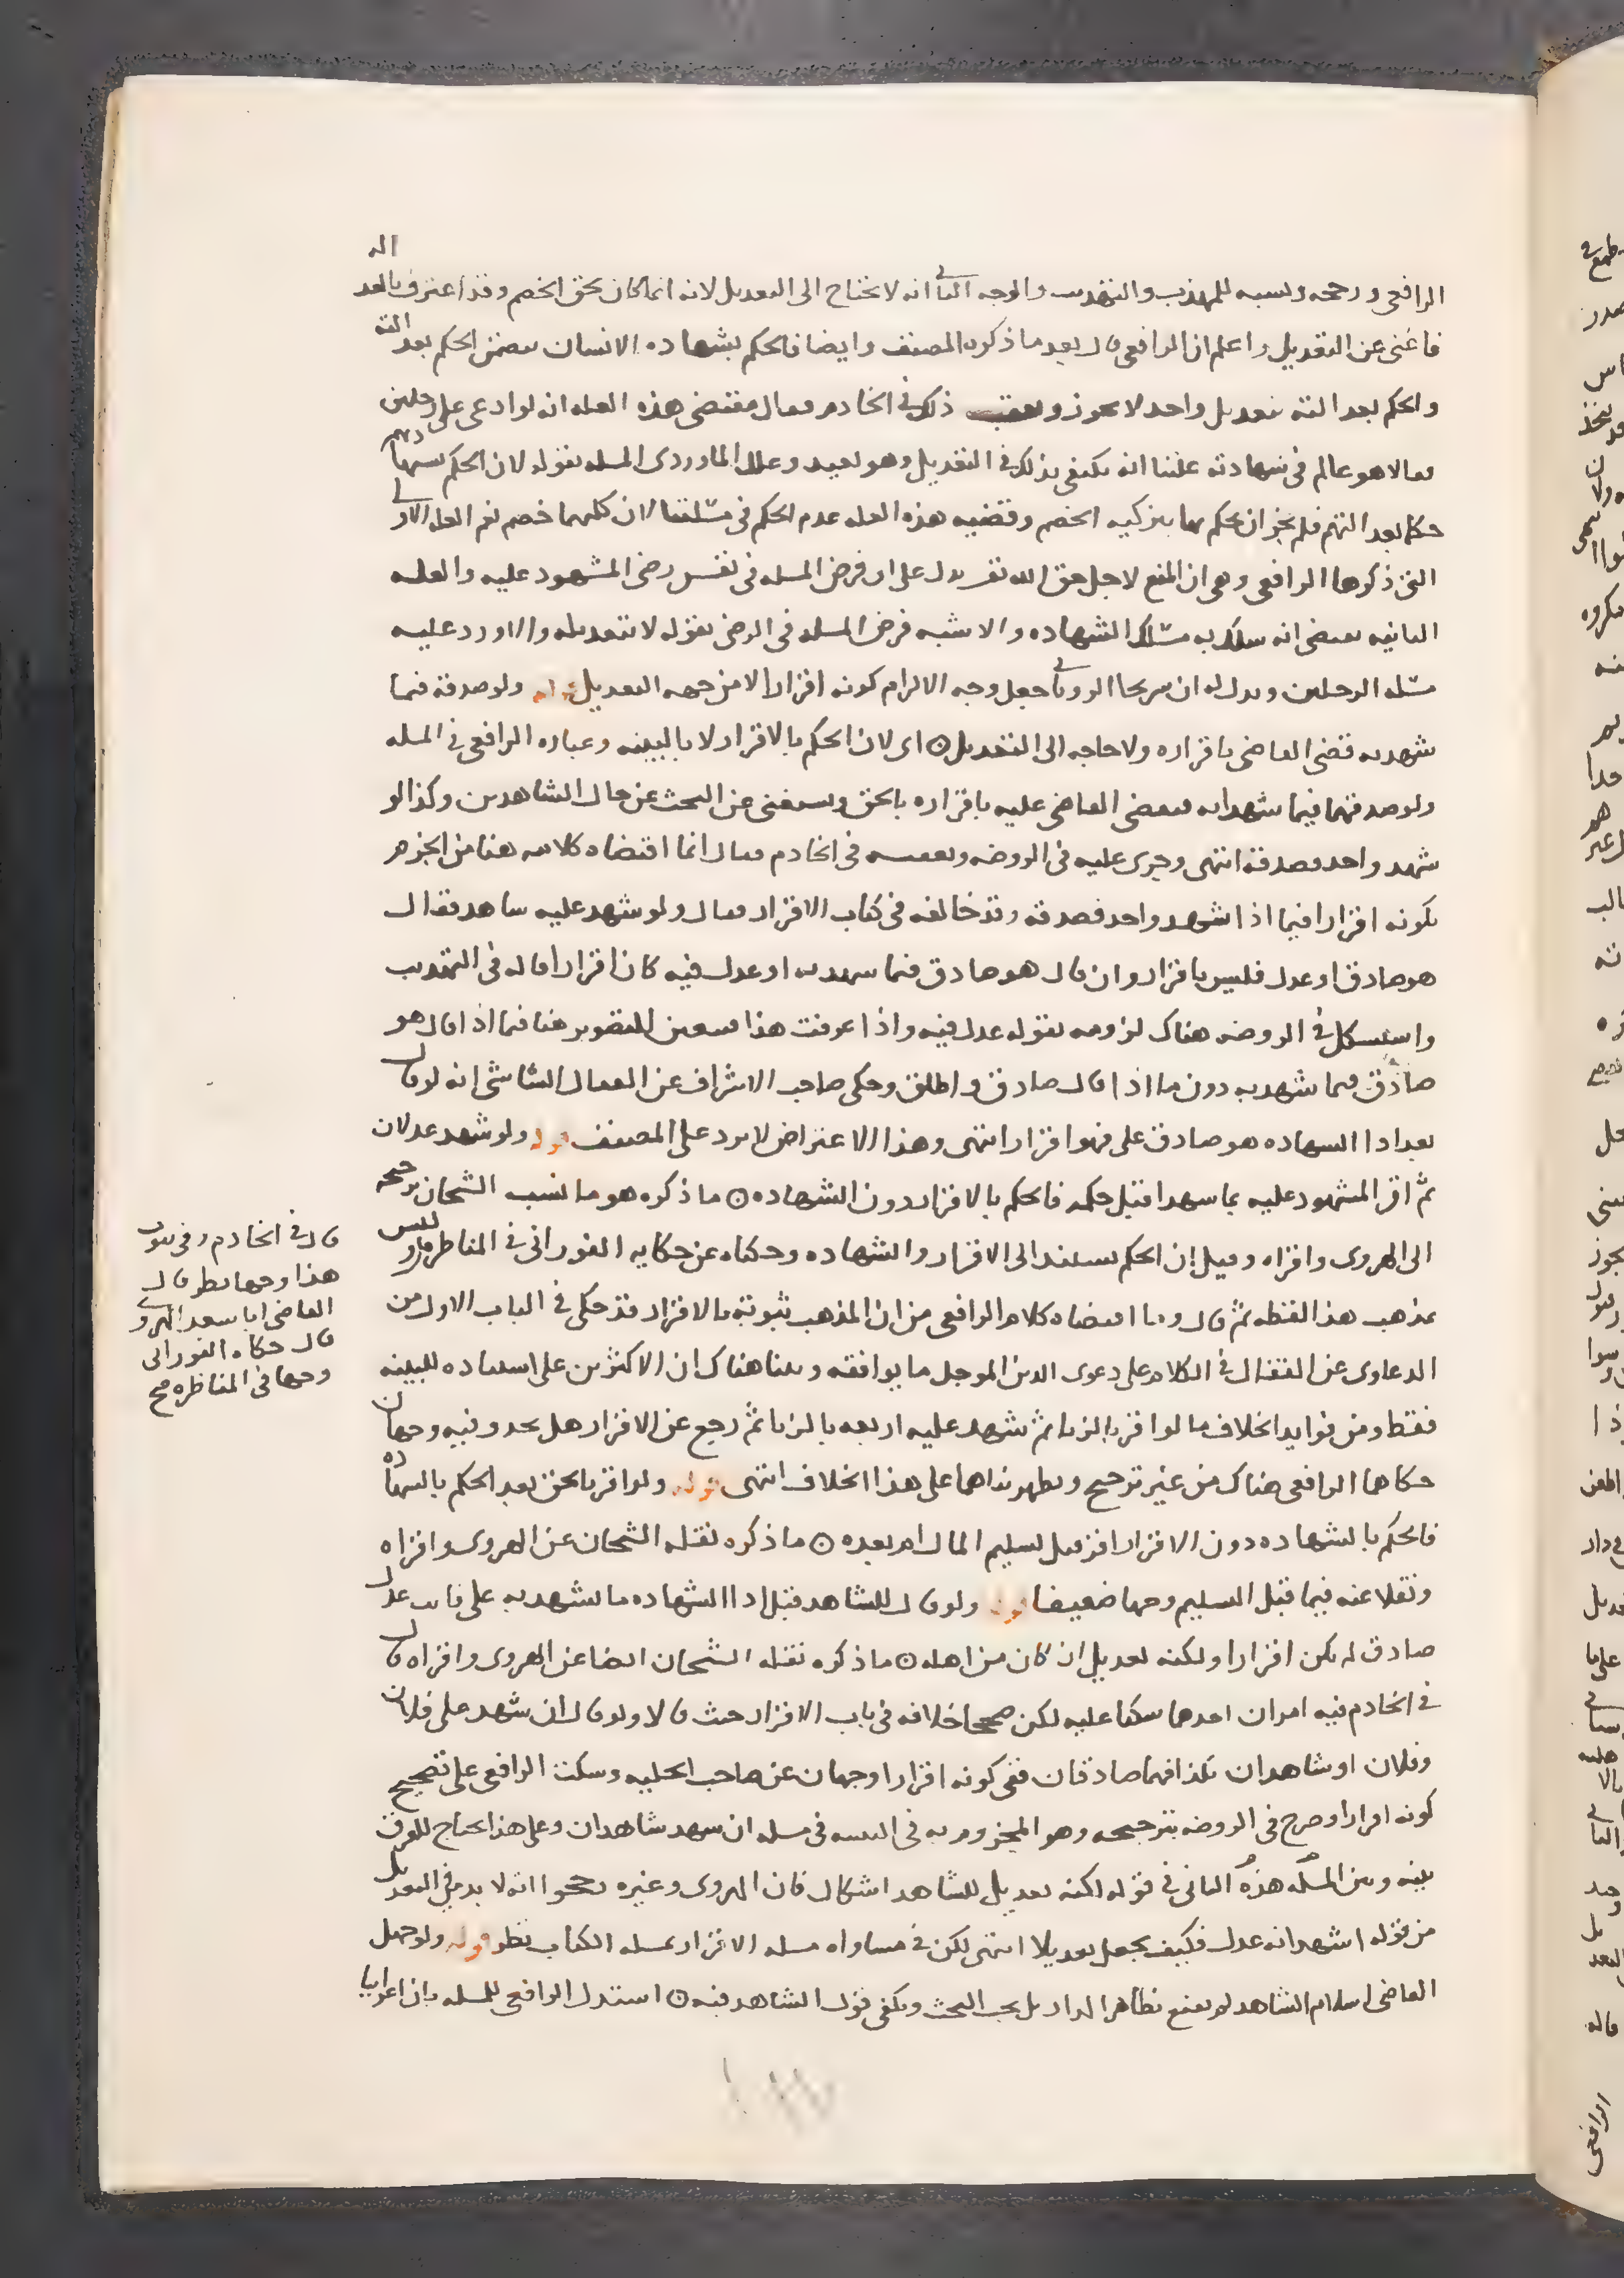 الرافعي ورجحه ونسبه للمهذب والتهذيب والوجه الثاني انه لا يحتاج الى التعديل لانه انما كان بحق الخصم وقد اعترف بالعداله
فاغنى عن التعديل واعلم ان الرافعي قال بعد ما ذكره المصنف وايضا فالحكم بشهاده الانسان يتضمن الحكم بعدالته
والحكم بعدالته بتعديل واحد لا يجوز وتعقب ذلك في الخادم فقال مقتضى هذه العله انه لو ادعى على رجلين
فقالا هو عالم في شهادته علينا انه يكتفى بذلك في التعديل وهو بعيد وعلل الماوردي المسله بقوله لان الحكم بشهادتهم
حكم بعدالتهم فلم يجز ان يحكم بها بتزكيه الخصم وقضيه هذه العله عدم الحكم في مسئلتنا لان كلهما خصم نعم العله الاولى
التي ذكرها الرافعي وهي ان المنع لاجل حق الله تعالى يدل على ان فرض المسله في نفس رضى المشهود عليه والعله
الثانيه تقتضي انه سلك به مسلك الشهاده والاشبه فرض المسله في الرضى بقوله لا بتعديله والا ورد عليه
مسئله الرجلين ويدل له ان شريحا الروياني جعل وجه الالزام كونه اقرارا لا من جهه التعديل قوله ولو صدقه فيما
شهد به قضى القاضي باقراره ولا حاجه الى التعديل ۞ اي لان الحكم بالاقرار لا بالبينه وعباره الرافعي في المسله
ولو صدقهما فيما شهدا به فيقضي القاضي عليه باقراره بالحق ويستغنى عن البحث عن حال الشاهدين وكذا لو
شهد واحد فصدقه انتهى وجرى عليه في الروضه وتعقبه في الخادم فقال انما اقتضاه كلامه هنا من الجزم
بكونه اقرارا فيما اذا شهد واحد فصدقه وقد خالفه في كتاب الاقرار فقال ولو شهد عليه شاهد فقال
هو صادق او عدل فليس باقرار وان قال هو صادق فيما شهد به او عدل فيه كان اقرارا قاله في التهذيب
واستشكل في الروضه هناك لزومه بقوله عدل فيه واذا عرفت هذا فيتعين التصوير هنا فيما اذا قال هو
صادق فيما شهد به دون ما اذا قال صادق واطلق وحكى صاحب الاشراف عن القفال الشاشي انه لو قال
بعد ادا الشهاده هو صادق علي فهو اقرار انتهى وهذا الاعتراض لا يرد على المصنف قوله ولو شهد عدلان
ثم اقر المشهود عليه بما شهدا قبل حكمه فالحكم بالاقرار دون الشهاده ۞ ما ذكره هو ما نسب الشيخان ترجيحه
الى الهروي واقراه وقيل ان الحكم يستند الى الاقرار والشهاده وحكياه عن حكايه الفوراني في المناظره وليس
بمذهب هذا لفظه ثم قال وما اقتضاه كلام الرافعي من ان المذهب ثبوته بالاقرار قد حكى في الباب الاول من
الدعاوى عن القفال في الكلام على دعوى الدين الموجل ما يوافقه وبينا هناك ان الاكثرين على استناده للبينه
فقط ومن فوايد الخلاف ما لو اقر بالزنا ثم شهد عليه اربعه بالزنا ثم رجع عن الاقرار هل يحد وفيه وجهان
حكاهما الرافعي هناك من غير ترجيح ويظهر بناهما على هذا الخلاف انتهى قوله ولو اقر بالحق بعد الحكم بالشهاده
فالحكم بالشهاده دون الاقرار اقر قبل تسليم المال ام بعده ۞ ما ذكره نقله الشيخان عن الهروي واقراه
ونقلا عنه فيما قبل التسليم وجها ضعيفا قوله ولو قال للشاهد قبل ادا الشهاده ما تشهد به علي فانت عدل
صادق لم يكن اقرارا ولكنه تعديل ان كان من اهله ۞ ما ذكره نقله الشيخان ايضا عن الهروي واقراه قال
في الخادم فيه امران احدهما سكتا عليه لكن صححا خلافه في باب الاقرار حيث قالا ولو قال ان شهد علي فلان
وفلان او شاهدان بكذا فهما صادقان ففي كونه اقرارا وجهان عن صاحب الحليه وسكت الرافعي على تصحيح
كونه اقرارا وصرح في الروضه بترجيحه وهو المجزوم به في التنبيه في مسله ان شهد شاهدان وعلى هذا يحتاج للفرق
بينه وبين المسله هذه الثاني في قوله لكنه تعديل للشاهد اشكال فان الهروي وغيره رجحوا انه لا بد في التعديل
من قوله اشهد انه عدل فكيف يجعل تعديلا انتهى لكن في مساواه مسله الاقرار لمسله الكتاب نظر قوله ولو جهل
القاضي اسلام الشاهد لم يقنع بظاهر الدار بل يجب البحث ويكفي قول الشاهد فيه ۞ استدل الرافعي للمسله بان اعرابيا
قال في الخادم وفي ثبوت
هذا وجها نظر قال
القاضي ابا سعد الهروي
قال حكاه الفوراني
وجها في المناظره صح